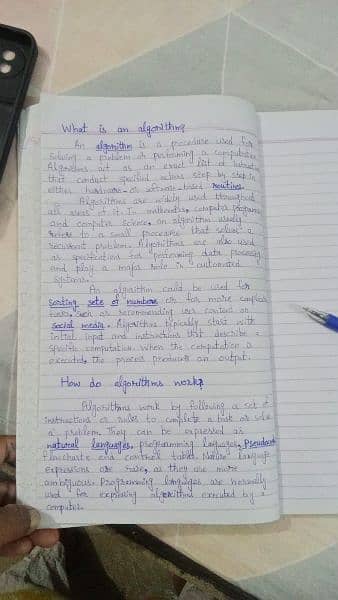 What is an algorithm?
An algorithm is a procedure used for
solving a problem or performing a computation.
Algorithms act as an exact list of
that conduct specified actions step by step in
either hardware- or software-based routines.
Algorithms are widely used throughout
all areas of it. In mathematics, computer programming
and computer science, an algorithm usually
refers to a small procedure that solves a
recurrent problem. Algorithms are also used
as specifications for performing data processing
and play a major role in automated
systems.
An algorithm could be used for
sorting sets of numbers or for more complex
tasks, such as recommending user content on
social media. Algorithms typically start with
initial input and instructions that describe a
specific computation. When the computation is
executed, the process produces an output.
How do algorithms work?
Algorithms work by following a set of
instructions or rules to complete a task or solve
a problem. They can be expressed as
natural languages, programming languages, Pseudocode
flowcharts and control tables. Natural language
expressions are rare, as they are more
ambiguous. Programming languages are normally
used for expressing algorithms executed by a
computer.